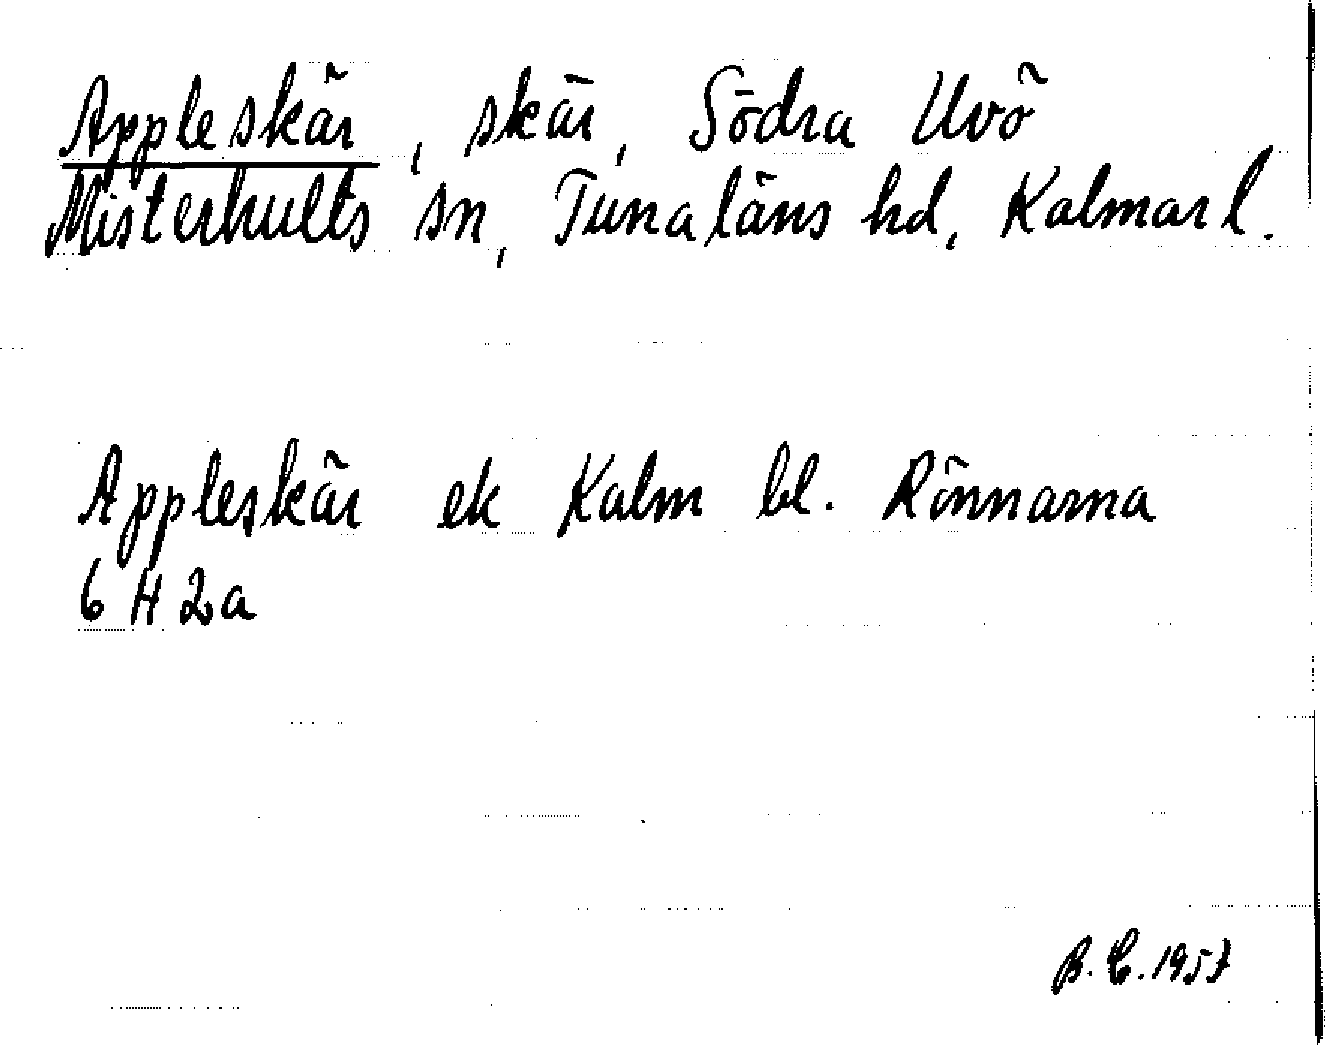 Appleskär, skär, Södra Uvö
Misterhults sn, Tunaläns hd, Kalmar l.
Appleskär ek Kalm bl. Rönnarna
6 H 2a
B. C. 1957